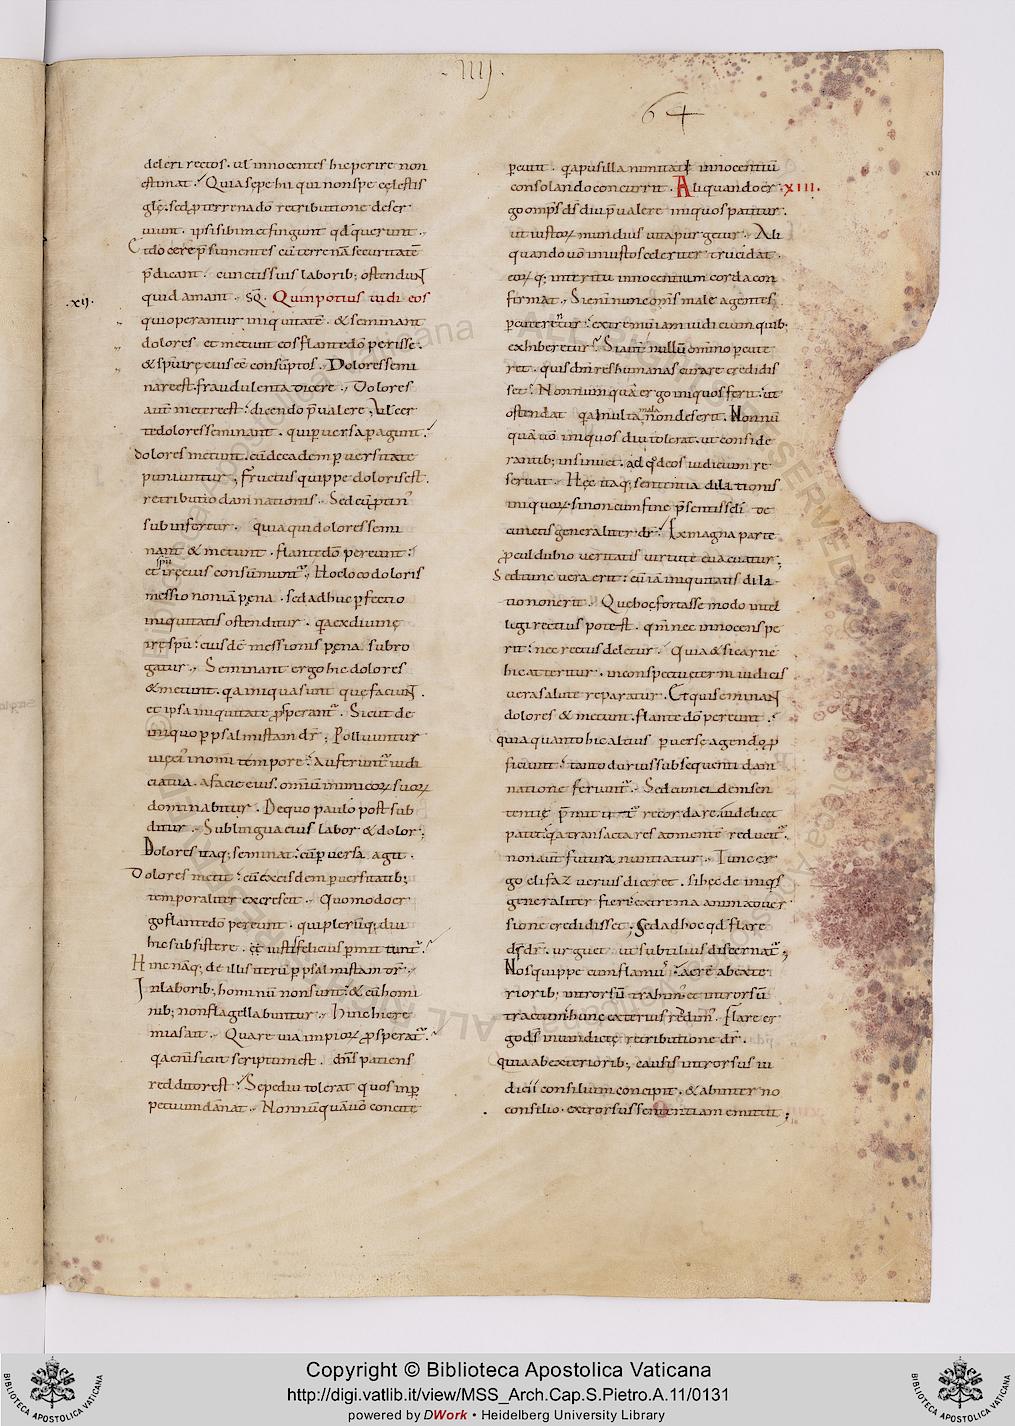 .IIIJ.
64
deleri rectos . ul innocentes hic perire non
estimat . Quia sepe hi qui non spe cęlestis
glę . sed p terrena do retributione deser
uiunt . ipsi sibimet fingunt qd querunt .
dicant . cunctis suis laborib; ostendunt
.xij.
quid amant . SQ . Quin potius uidi eos
qui operantur iniquitatē . & seminant
dolores et metunt eos flante dō perisse .
& spū irę eius eē consūptos . Dolores semi
nare est . fraudulenta dicere . Dolores
aut metere est . dicendo pualere . Ul cer
te dolores seminant . qui puersa pagunt .
dolores metunt . cū de eadem puersitate
puniuntur . Fructus quippe doloris est .
retributio damnationis . Sed cū ptin
sub infertur . quia qui dolores semi
nant & metunt . flante dō pereunt .
spu
et irę eius consūmunt . Hoc loco doloris
messio non iā pęna . sed adhuc pfectio
iniquitatis ostenditur . qa ex diuinę
irę spū . eiusdē messionis pęna subro
gatur . Seminant ergo hic dolores
& metunt . qa iniqua sunt quę faciunt .
et ipsa iniquitate psperant . Sicut de
iniquo p psalmistam dr . Polluuntur
uię ei in omi tempore . Auferunt iudi
cia tua a facie eius . omniū inimicorum suorum
dominabitur . De quo paulo post sub
ditur . Sub lingua eius labor & dolor ;
Dolores itaq; seminat . cū puersa agit .
Dolores metit . cū ex eisdem puersitatib;
temporaliter excrescit . Quomodo er
go flante dō pereunt . qui plerūq; diu
hic subsistere . & iustis felicius pmittunt .
Hinc nāq; de illis iterū p psalmistam dr .
In laborib; hominū non sunt . & cū homi
nib; non flagellabuntur . Hinc hiere
mias ait . Quare uia impiorum psperat .
qa enī sicut scriptum est . dns patiens
redditor est . Sepe diu tolerat quos in p
petuum dānat . Nonnūquā uō concite
percutit . qa pusillanimitati innocentiū
consolando concurrit . Aliquando er .XIII.
go omps ds diu pualere iniquos patitur .
ut iustorum mundius uita purgetur . Ali
quando uō iniustos celeriter trucidat .
eorumq; interitu innocentium corda con
firmat . Si enī nunc oms male agentes
percuteret . extremū iam iudicium quib;
exhiberetur . Si aut nullū omino pcute
ret . quis dm res humanas curare credidis
set . Nonnunquā ergo iniquos ferit . ut
mala
ostendat qa inulta non deserit . Nonnū
quā uō iniquos diu tolerat . ut conside
rantib; insinuet . ad qd eos iudicium re
seruat . Hęc itaq; sententia dilationis
iniquorum . si non cum fine psentis sęcli de
cunctis generaliter dr . Ex magna parte
pcul dubio ueritatis uirtute euacuatur ;
Sed tunc uera erit . cū iā iniquitatis dila
tio non erit . Que hoc fortasse modo intel
ligi rectius potest . qm nec innocens pe
rit . nec rectus deletur . Quia & si carne
hic atteritur . in conspectu ęterni iudicis
uera salute reparatur . Et qui seminant
dolores & metunt . flante dō pereunt .
quia quanto hic altius peruerse agendo p
ficiunt . tanto durius subsequenti dam
natione feriuntur .
patet . qa transacta res ad mentē reducit .
non aut futura nuntiatur . Tunc er
go elifaz uerius diceret . si hęc de iniqs
generaliter fieri extrema animaduer
sione credidisset . Sed adhoc qd flare
ds dr . urguet ut subtilius discernat ;
Nos quippe cum flamus . aerē ab exte
riorib; introrsū trahim . et introrsū
tractum . hunc exterius reddim . Flare er
go ds in uindictę retributione dr .
quia ab exteriorib; causis introrsus iu
dicii consilium concipit . & ab interno
consilio . extrorsus sententiam emittit ;
Copyright © Biblioteca Apostolica Vaticana
http://digi.vatlib.it/view/MSS_Arch.Cap.S.Pietro.A.11/0131
powered by DWork • Heidelberg University Library
BIBLIOTECA APOSTOLICA VATICANA
BIBLIOTECA APOSTOLICA VATICANA